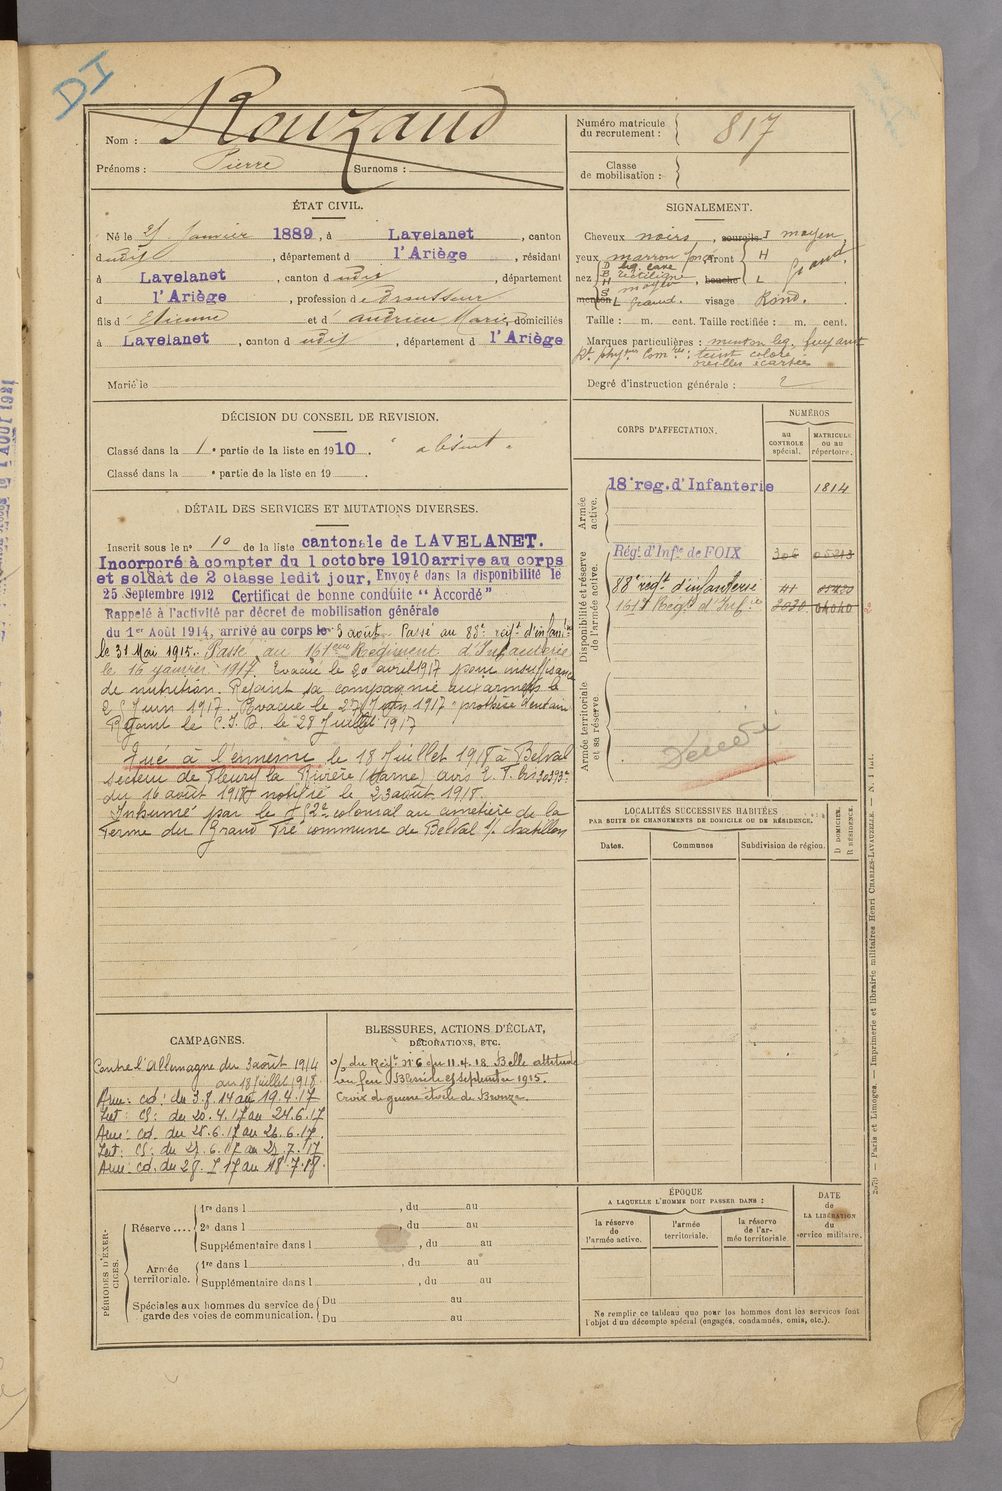 DI
Nom : Rouzaud
Prénoms : Pierre Surnoms :
Numéro matricule du recrutement : 817
Classe de mobilisation :
ÉTAT CIVIL.
Né le 25 Janvier 1889, à Lavelanet, canton
dudit, département d l'Ariège, résidant
à Lavelanet, canton d udit, département
d l'Ariège, profession de trousseur
fils d' Etienne et d' Andrieu Marie, domiciliés
à Lavelanet, canton d udit, département d l'Ariège
Marié le
SIGNALEMENT.
Cheveux noirs, sourcils I moyen
yeux marron foncé front H
nez D lég. cave
B rectiligne
H moyen bouche L grand.
S
menton L grand. visage Rond.
Taille : m. cent. Taille rectifiée : m. cent.
Marques particulières : menton lég. fuyant
teint coloré
oreilles écartées
Degré d'instruction générale : 2
DÉCISION DU CONSEIL DE REVISION.
Classé dans la 1e partie de la liste en 1910. " absent "
Classé dans la e partie de la liste en 19 .
DÉTAIL DES SERVICES ET MUTATIONS DIVERSES.
Inscrit sous le no 10 de la liste cantonale de LAVELANET.
Incorporé à compter du 1 octobre 1910 arrive au corps
et soldat de 2 classe ledit jour, Envoyé dans la disponibilité le
25 Septembre 1912 Certificat de bonne conduite " Accordé "
Rappelé à l'activité par décret de mobilisation générale
du 1er Août 1914, arrivé au corps le 3 août. Passé au 88e régt d'infanie
le 31 Mai 1915. Passé au 161ème Régiment d'Infanterie
le 16 janvier 1917. Evacué le 20 avril 1917 pour insuffisance
de nutrition. Rejoint sa compagnie aux armées le
25 Juin 1917. Evacué le 27 Juin 1917 "prothèse dentaire
Rejoint le C.I.D. le 28 Juillet 1917
Tué à l'ennemi le 18 Juillet 1918 à Belval
secteur de Fleury la Rivière (Marne) avis
du 16 août 1918 notifié le 23 août 1918.
Inhumé par le 52e colonial au cimetière de la
Ferme du Grand Pré commune de Belval s/ chatillon
CORPS D'AFFECTATION.
NUMÉROS
au CONTROLE spécial.
MATRICULE OU AU répertoire.
Armée active.
18e reg. d'Infanterie 1814
Disponibilité et réserve de l'armée active.
Régt. d'Infie de FOIX
88e régt d'infanterie 41
161e Régt d'Infie
Armée territoriale et sa réserve.
Décédé
LOCALITÉS SUCCESSIVES HABITÉES
PAR SUITE DE CHANGEMENTS DE DOMICILE OU DE RÉSIDENCE.
Dates. Communes Subdivision de région. D DOMICILE. R RÉSIDENCE.
CAMPAGNES.
Contre l'Allemagne du 3 août 1914
au 18 juillet 1918.
Arm: cd: du 3.8.14 au 19.4.17
Int: CS: du 20.4.17 au 24.6.17
Arm: cd. du 25.6.17 au 26.6.17.
Int: CS: du 27.6.17 au 27.7.17
Arm: cd. du 28.7.17 au 18.7.18.
BLESSURES, ACTIONS D'ÉCLAT, DÉCORATIONS, ETC.
o/ du Régt. n°6 du 11.4.18. Belle attitude
au feu. Blessé le 25 septembre 1915.
Croix de guerre étoile de Bronze.
PÉRIODES D'EXERCICES.
Réserve .... 1re dans l , du au
2e dans l , du au
Supplémentaire dans l , du au
Armée territoriale. 1re dans l , du au
Supplémentaire dans l , du au
Spéciales aux hommes du service de garde des voies de communication. Du au
Du au
ÉPOQUE
A LAQUELLE L'HOMME DOIT PASSER DANS :
la réserve de l'armée active.
l'armée territoriale.
la réserve de l'armée territoriale
DATE de LA LIBÉRATION du service militaire.
Ne remplir ce tableau que pour les hommes dont les services font
l'objet d'un décompte spécial (engagés, condamnés, omis, etc.).
2579 — Paris et Limoges. — Imprimerie et librairie militaires Henri CHARLES-LAVAUZELLE. — N. 1 int.